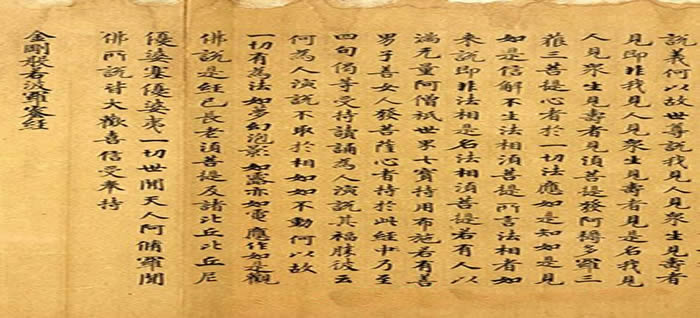 說義何以故世尊說我見人見衆生見壽者
見即非我見人見衆生見壽者見是名我見
人見衆生見壽者見須菩提發阿耨多羅三
藐三菩提心者於一切法應如是知如是見
如是信解不生法相須菩提所言法相者如
來說即非法相是名法相須菩提若有人以
滿无量阿僧祇世界七寶持用布施若有善
男子善女人發菩薩心者持於此經中乃至
四句偈等受持讀誦為人演說其福勝彼云
何為人演說不取於相如如不動何以故
一切有為法如夢幻泡影如露亦如電應作如是觀
佛說是經已長老須菩提及諸比丘比丘尼
優婆塞優婆夷一切世間天人阿脩羅聞
佛所說皆大歡喜信受奉持
金剛般若波羅蜜經